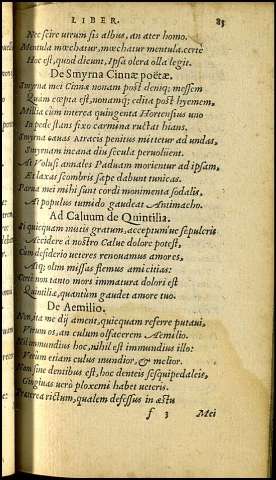 LIBER. 83
Nec scire utrum sis albus, an ater homo.
Mentula mœchatur, mœchatur mentula. certè
Hoc est, quod dicunt, Ipsa olera olla legit.
De Smyrna Cinnæ poëtæ.
Smyrna mei Cinnæ nonam post deniq; messem
Quam cœpta est, nonamq; edita post hyemem,
Millia cùm interea quingenta Hortensius uno
In pede stans fixo carmina ructat hians,
Smyrnam cauas Atracis penitus mittetur ad undas,
Smyrnam incana diu secula peruoluent.
At Volusi annales Paduam morientur ad ipsam,
Et laxas scombris sæpe dabunt tunicas.
Parua mei mihi sunt cordi monimenta sodalis,
At populus tumido gaudeat Antimacho.
Ad Caluum de Quintilia.
Si quicquam mutis gratum, acceptum'ue sepulcris
Accidere à nostro Calue dolore potest,
Cùm desiderio ueteres renouamus amores,
Atq; olim missas flemus amicitias:
Certè non tanto mors immatura dolori est
Quintiliæ, quantùm gaudet amore tuo.
De Aemilio.
Non, ita me dij ament, quicquam referre putaui,
Vtrum os, an culum olfacerem Aemilio.
Nil immundius hoc, nihil est immundius illo:
Verùm etiam culus mundior, & melior.
Nam sine dentibus est, hoc denteis sesquipedaleis,
Gingiuas uerò ploxemi habet ueteris.
Præterea rictum, qualem defessus in æstu
f 3 Mei